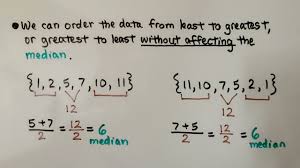 • We can order the data from least to greatest,
or greatest to least without affecting the
median.
{1, 2, 5, 7, 10, 11} {11, 10, 7, 5, 2, 1}
12 12
5+7/2 = 12/2 = 6 median 7+5/2 = 12/2 = 6 median